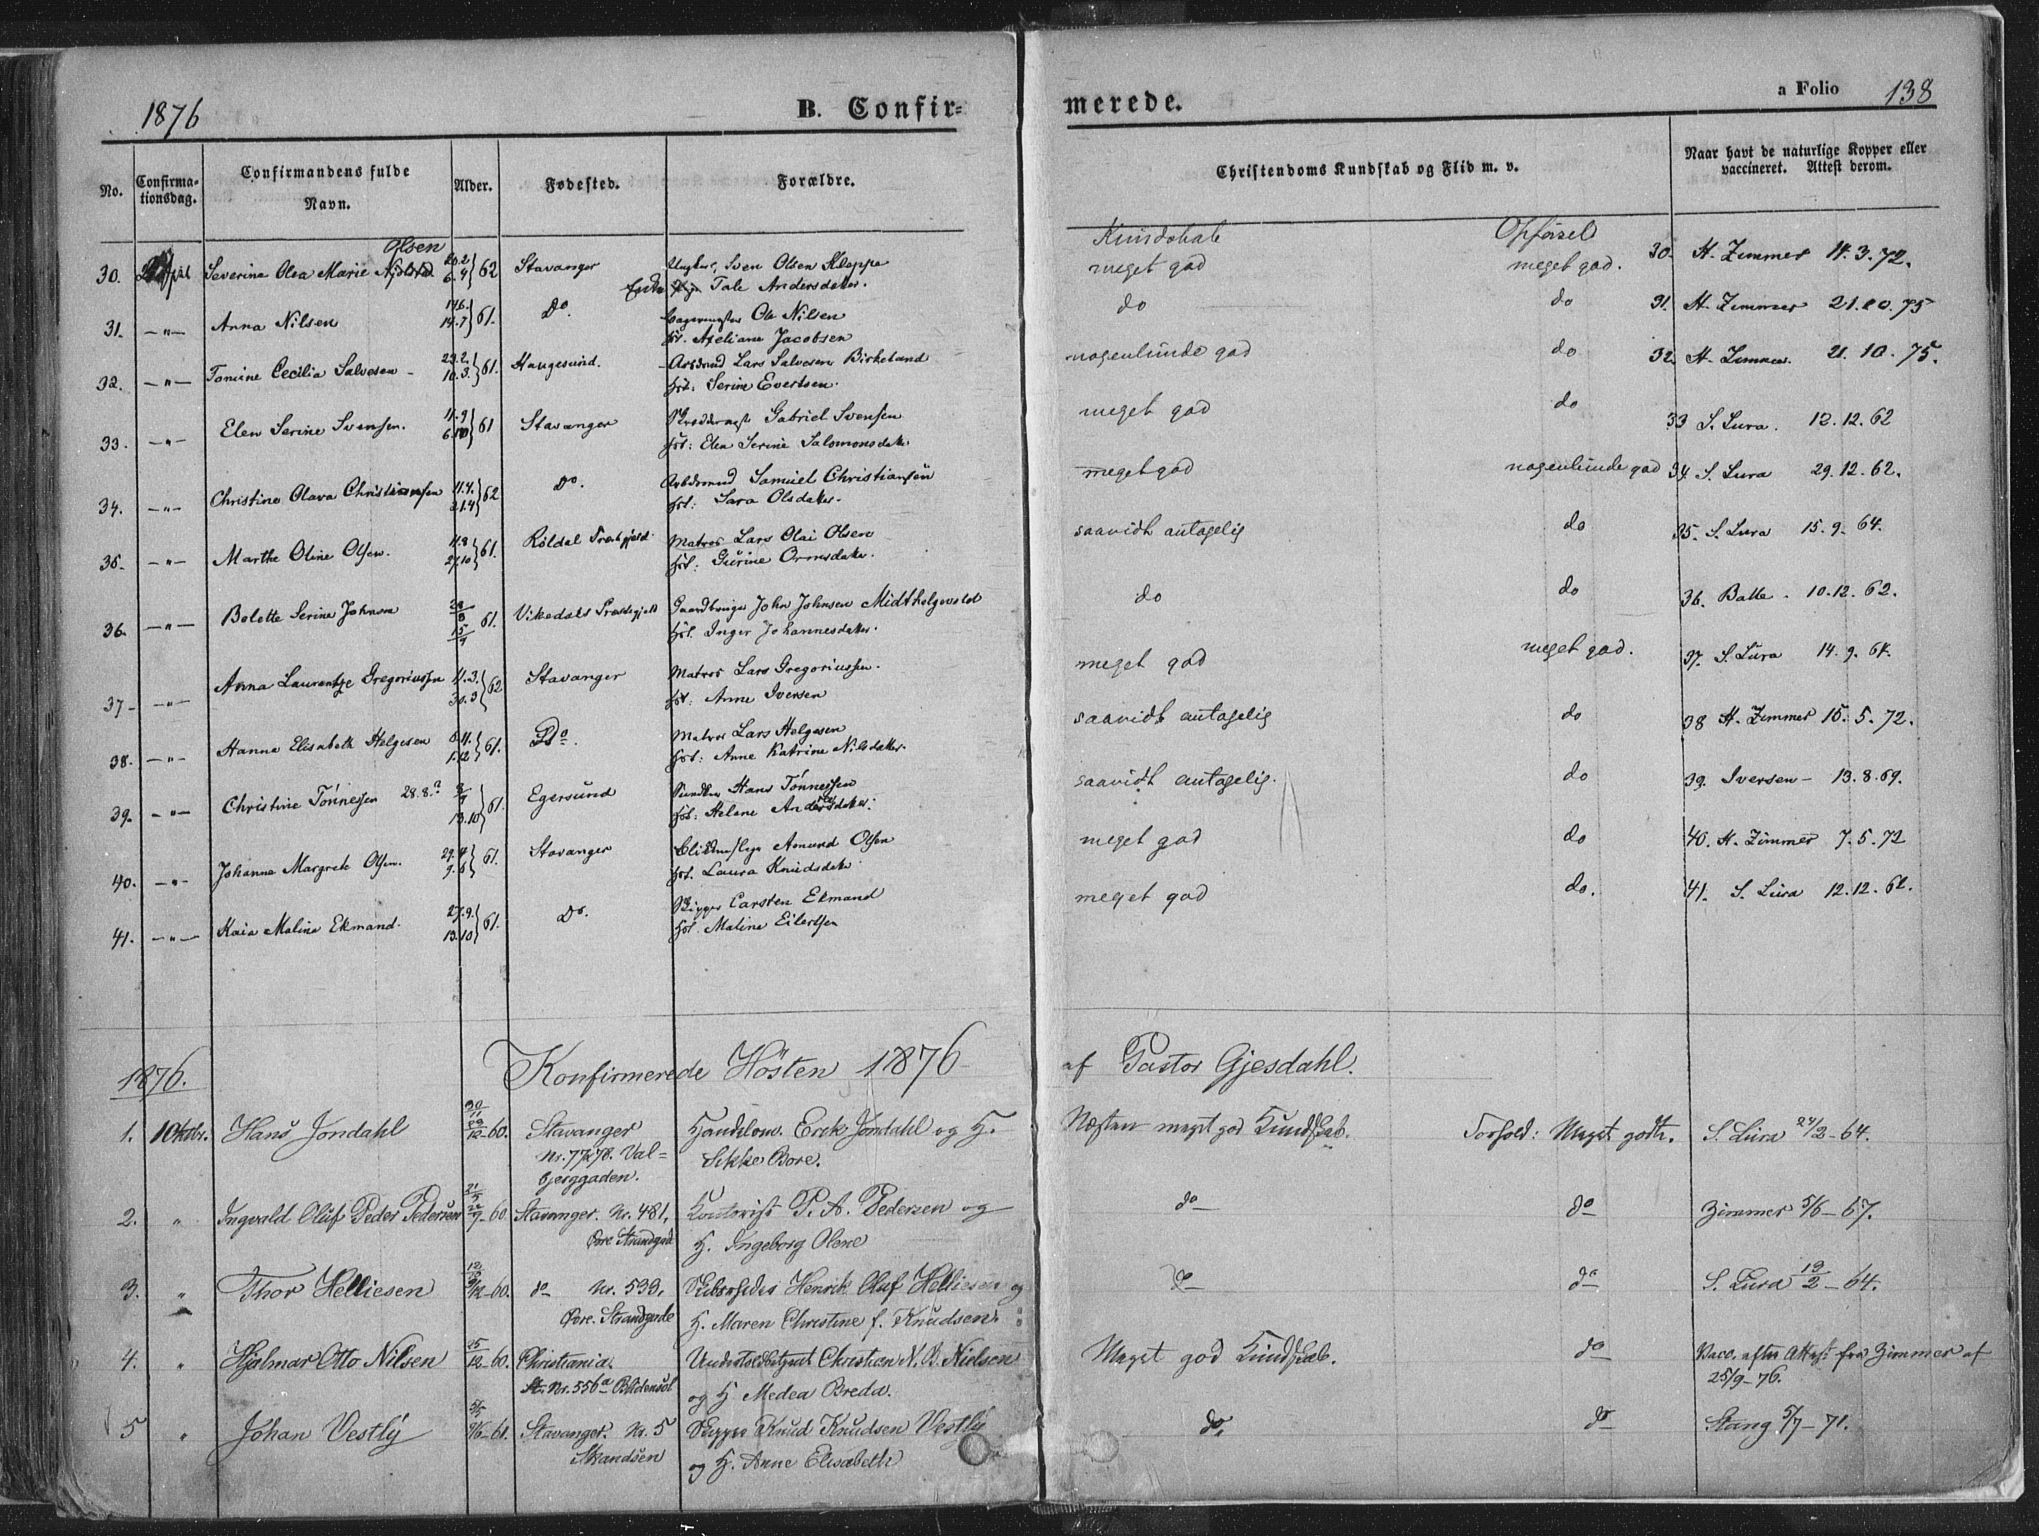 1876
B. Confir=
merede.
a Folio 138
No.
Confirma-
tionsdag.
Confirmandens fulde
Navn.
Alder.
Fødested.
Forældre.
Christendoms Kundskab og Flid m. v.
Naar havt de naturlige Kopper eller
vaccineret. Attest derom.
Kundskab
Opførsel
Olsen
30. Severine Olea Marie 62 Stavanger Sven Olsen Kleppe meget god meget god. 30. H. Zimmer 14.3.72.
Tale Andersdatter.
31. —"— Anna Nilsen 14.7 61. Do. Ole Nilsen do do 31. H. Zimmer 21.10.75
Hst. Axeliane Jacobsen
32. —"— Tomine Cecilia Salvesen 10.3. 61. Haugesund. Arbdmd Lars Salvesen Birkeland nogenlunde god do 32. H. Zimmer 21.10.75.
Hst: Serine Evertsen.
33. —"— Elen Serine Svensen. 11.9 6.10 61 Stavanger Gabriel Svensen meget god do 33 S. Lura. 12.12.62
Hst: Elen Serine Salomonsdatter
34. —"— Christine Olava Christiansen 21.4 62 Do. Arbdsmd Samuel Christiansen meget god nogenlunde god 34. S. Lura 29.12.62.
Hst: Sara Olsdatter.
35. —"— Marthe Oline Olsen. 11.8 27.10 61. Röldal Præstgjeld Matros Lars Olai Olsen saavidt antagelig do 35. S. Lura 15.9.64.
Hst: Gurine Ormsdatter.
36. —"— Bolette Serine Johnsen 61. Vikedals Præstegjeld Gaardbruger John Johnsen Midthelgevold do do 36. Balle. 10.12.62.
Hst. Inger Johannesdatter.
37 —"— Anna Laurentze Gregoriussen 11.3. 30.3 62 Stavanger Matros Lars Gregoriussen. meget god meget god. 37. S. Lura 14.9.64.
Hst: Anne Iversen
38. —"— Hanna Elisabeth Helgesen 1.12 61. Do. Matros Lars Helgesen saavidt antagelig do 38 H. Zimmer 15.5.72.
Hst: Anne Katrine Nilsdatter.
39. —"— Christine Tönnessen 28.8. 13.10 61. Egersund Hans Tönnessen saavidt antagelig. do 39. Iversen — 13.8.69.
Hst: Helene Andersdatter.
40. —"— Johanne Margrete Olsen. 9.6 61. Stavanger Amund Olsen meget god do 40. H. Zimmer 7.5.72
Hst. Laura Knudsdatter
41. —"— Kaia Malina Ekmand. 27.9. 13.10 61. Do. Skipper Carsten Ekmand meget god do. 41. S. Lura 12.12.62.
Hst. Malina Eilertsen
1876.
Konfirmerede Hösten 1876
af Pastor Gjesdahl.
1. 1 Oktbr. Hans Jondahl 30/11 29/12-60. Stavanger Handelsm. Erik Jondahl og H. Næsten meget god Kundskab. Forhold: Meget godt. S. Lura 24/2-64.
Nr. 77 78. Val= Sikke Bore.
bjerggaden.
2. " Ingvald Oluf Peder Pedersen 60 Stavanger. Nr. 481, P. A. Pedersen og do do Zimmer 5/6-67.
Øvre Strandgad H. Ingeborg Olene
3. " Thor Helliesen 60. do Nr. 533, Skibsreder Henrik Oluf Helliesen og do do S. Lura 19/2-64.
Øvre. Strandgade H. Maren Christine f. Knudsen.
4. " Hjalmar Otto Nilsen 12-60. Christiania. Undertoldbetjent Christian N. B. Nielsen Meget god Kundskab. do Vacc. efter Attest fra Zimmer af
St. Nr. 556a og H. Medea Breda. 25/9-76.
5 " Johan Vestly 61. Stavanger. Nr. 5 Skipper Knud Knudsen Vestly do. do Stang 5/7-71.
Strandsen og H. Anne Elisabeth